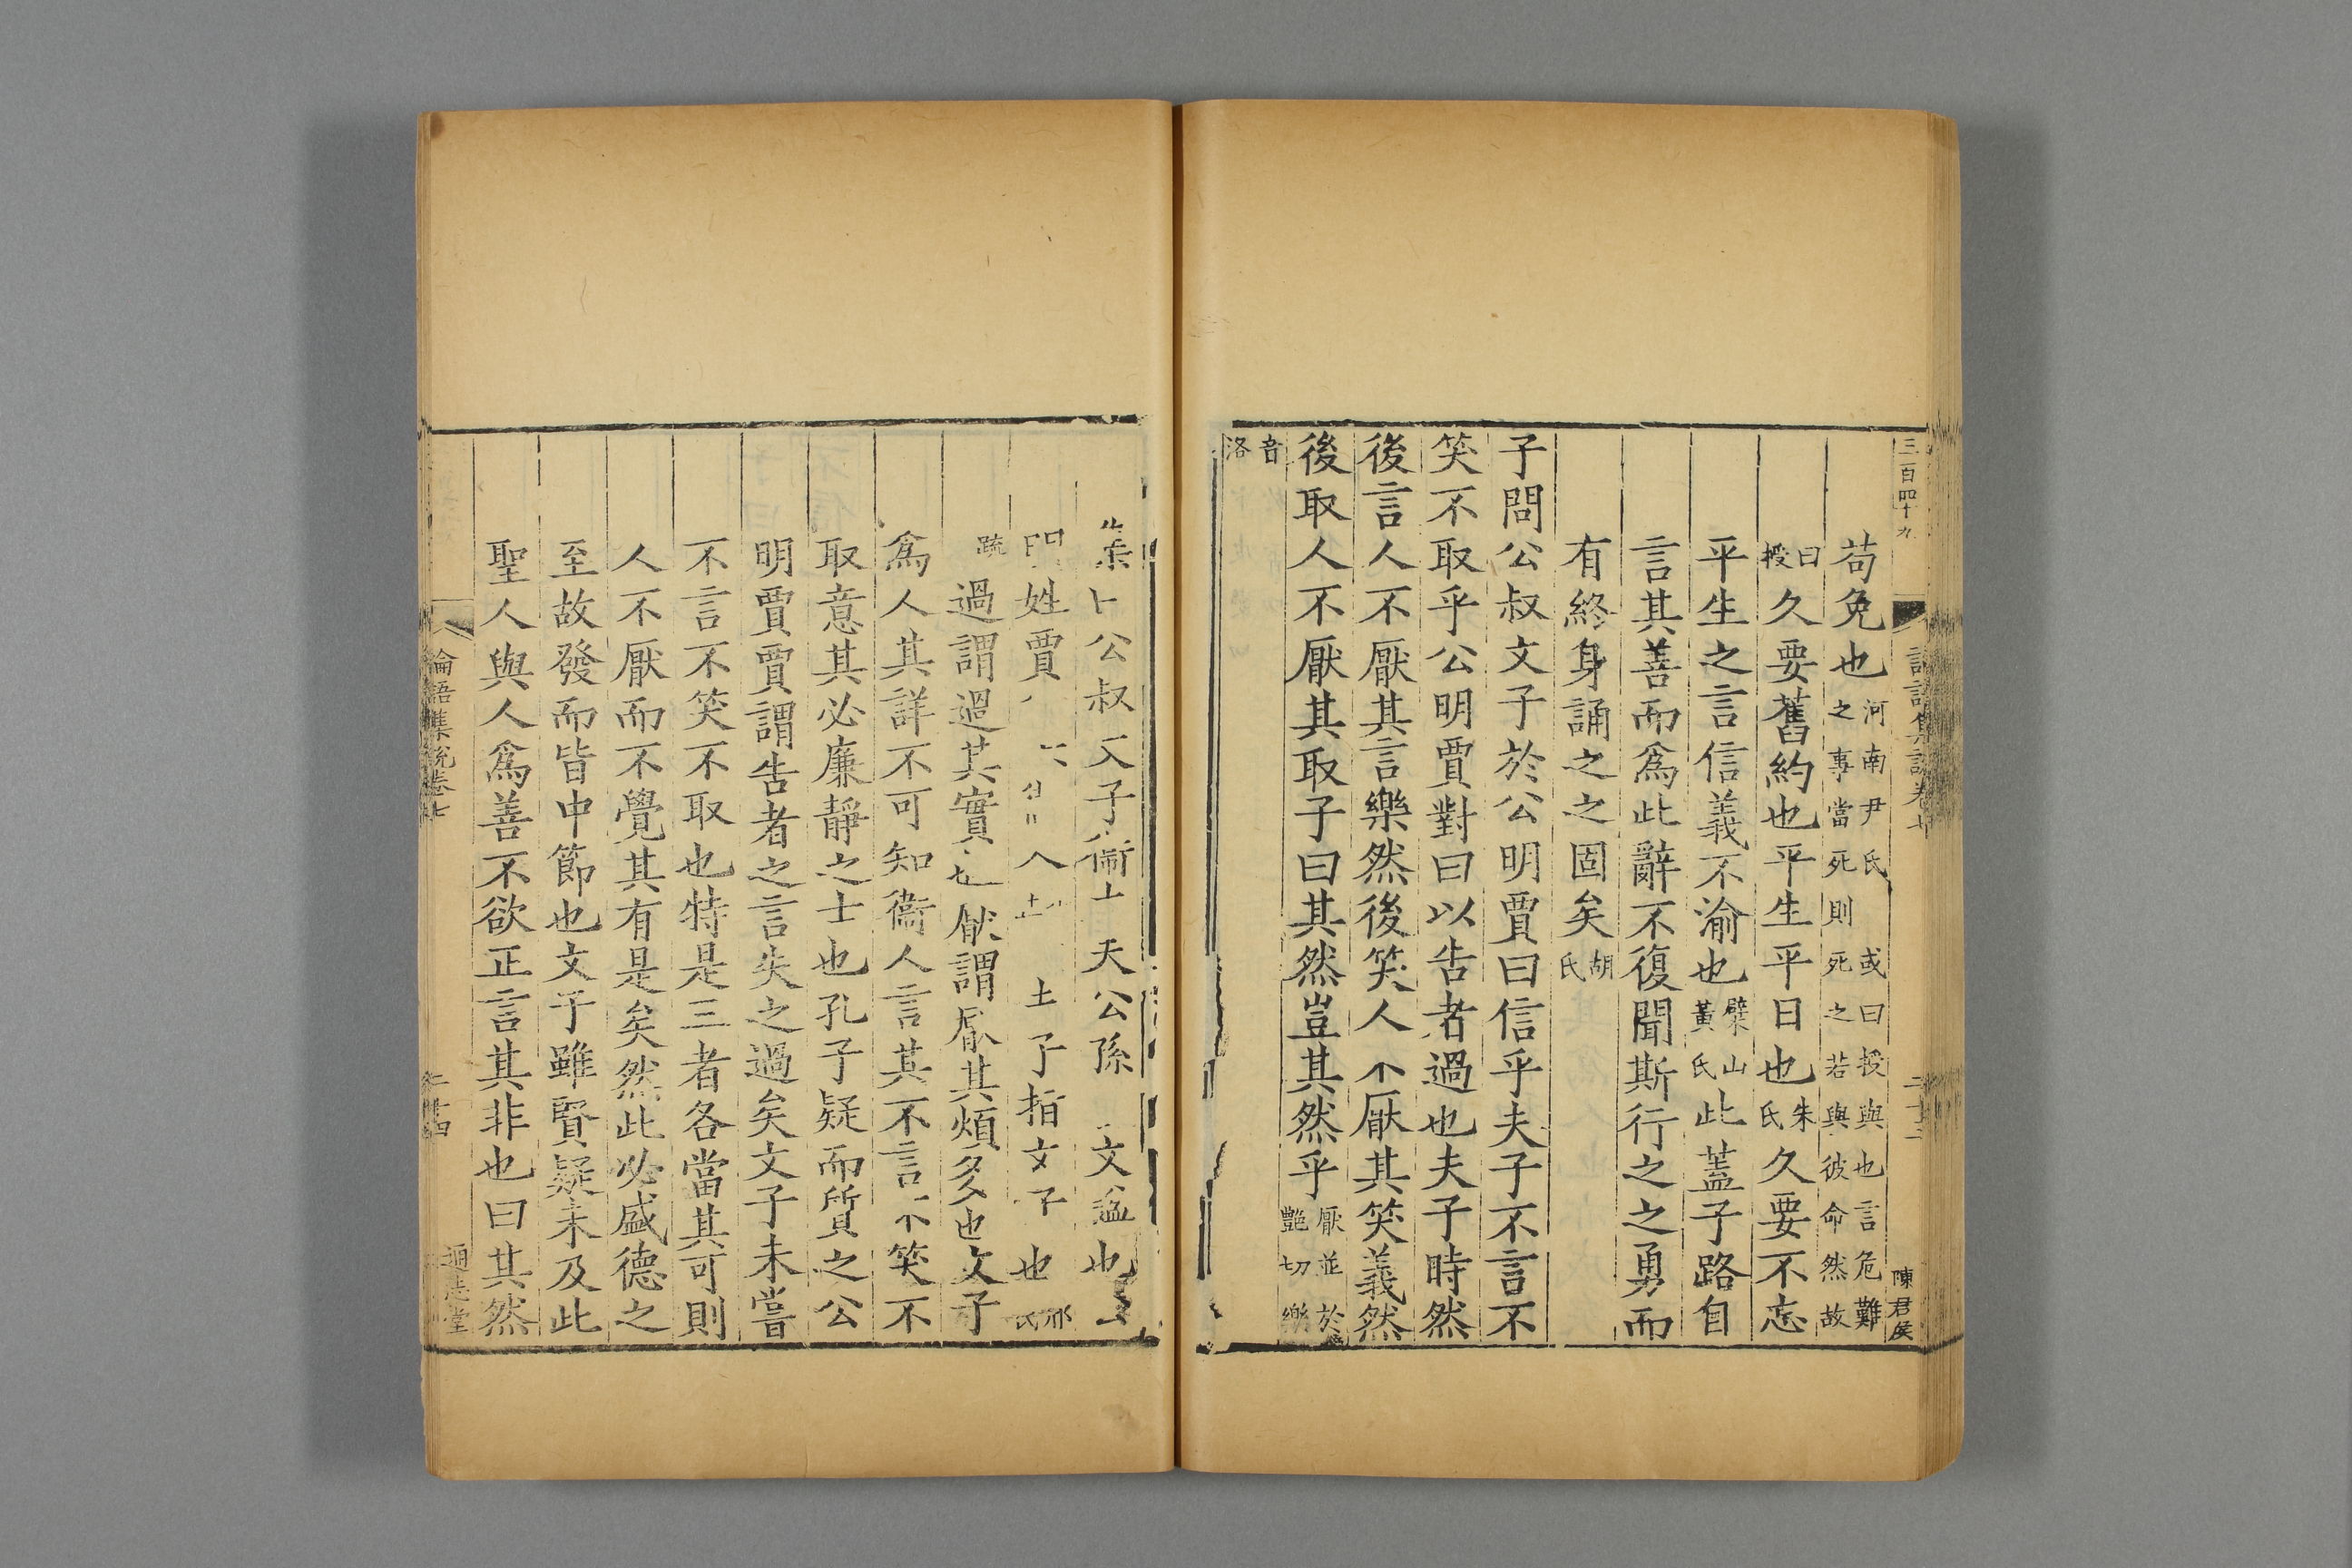 三百四十九
陳君侯
苟免也河南尹氏或曰授與也言危難之事當死則死之若與彼命然故
曰授久要舊約也平生平日也朱氏久要不忘
平生之言信義不渝也檗山黃氏此蓋子路自
言其善而為此辭不復聞斯行之之勇而
有終身誦之之固矣胡氏
子問公叔文子於公明賈曰信乎夫子不言不
笑不取乎公明賈對曰以告者過也夫子時然
後言人不厭其言樂然後笑人不厭其笑義然
後取人不厭其取子曰其然豈其然乎厭並於艷切樂
音洛
公叔文子衞天公孫文也
姓賈子指文子也邢氏
疏過謂過其實也厭謂厭其煩多也文子
為人其詳不可知衞人言其不言不笑不
取意其必廉靜之士也孔子疑而質之公
明賈賈謂告者之言失之過矣文子未嘗
不言不笑不取也特是三者各當其可則
人不厭而不覺其有是矣然此必盛德之
至故發而皆中節也文子雖賢疑未及此
聖人與人為善不欲正言其非也曰其然
論語集說卷七
二十四
通志堂